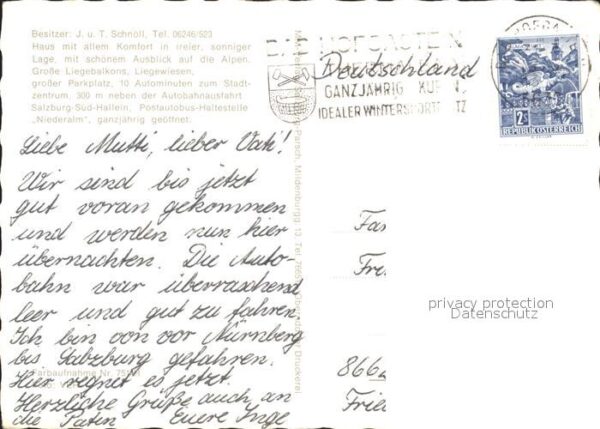 Besitzer: J. u. T. Schnöll, Tel. 06246/523
Haus mit allem Komfort in freier, sonniger
Lage, mit schönem Ausblick auf die Alpen.
Große Liegebalkons, Liegewiesen,
großer Parkplatz, 10 Autominuten zum Stadt-
zentrum, 300 m neben der Autobahnausfahrt
Salzburg-Süd-Hallein, Postautobus-Haltestelle
„Niederalm“, ganzjährig geöffnet.
BAD HOFGASTEIN
GANZJÄHRIG KUREN,
IDEALER WINTERSPORTPLATZ
Deutschland
2S
REPUBLIK ÖSTERREICH
Liebe Mutti, lieber Vati!
Wir sind bis jetzt
gut voran gekommen
und werden nun hier
übernachten. Die Auto-
bahn war überraschend
leer und gut zu fahren.
Ich bin von vor Nürnberg
bis Salzburg gefahren.
Hier regnet es jetzt.
Herzliche Grüße auch an
die Paten Eure Inge
Farbaufnahme Nr.
Fa
Fre
866
Frie
privacy protection
Datenschutz